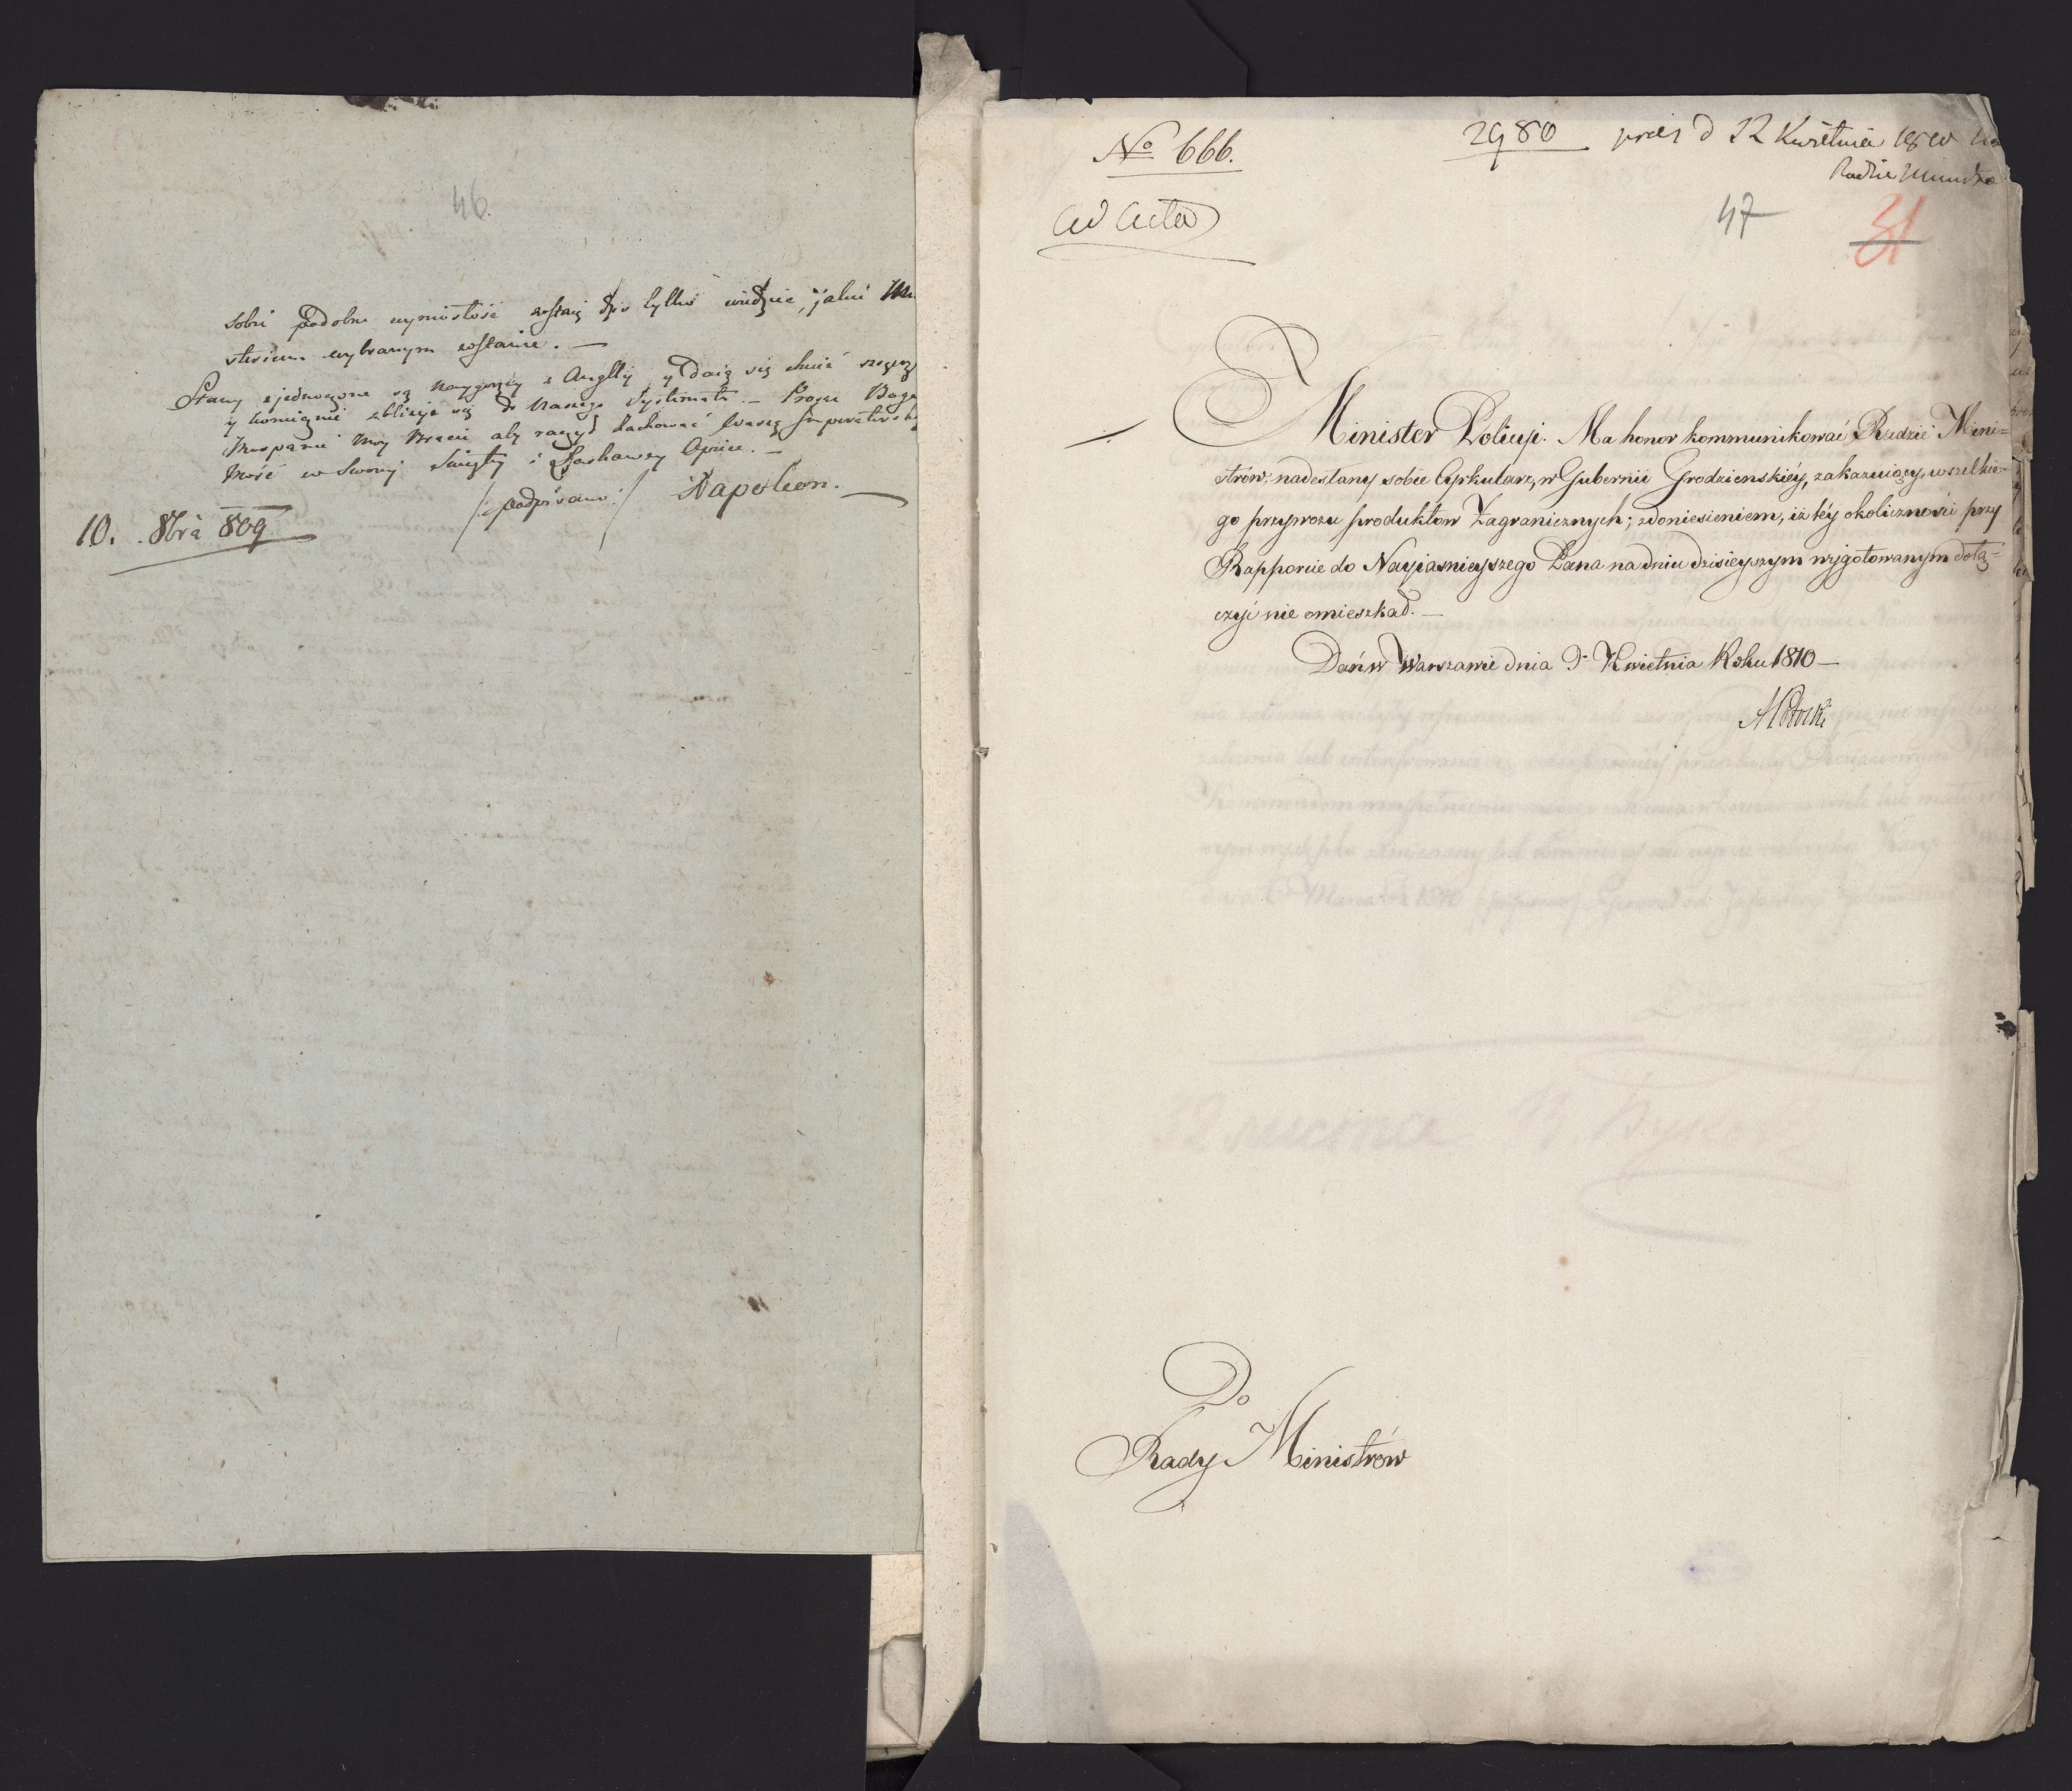 46
sobie podobne wyniosłość zostaią tylko widzie, jakie Mi
sterium wybranym zostanie. —
Stany zjednoczone są naygorzey z Anglią y daią się chcieć szczerze
y koniecznie zbliżyć się do Naszego Systematu. — Proszę Boga
Mospanie Moy Bracie aby raczył zachować Waszą Imperatorską
Mość w Swoiey Swiętey i Łaskawey Opiece. —
/: podpisano :/ Napoleon. —
10. 8bra 809
No 666.
2980 prez d 12 Kwietnia 1810 na
Radzie Ministr
ad acta
47
31
Minister Policyi. Ma honor kommunikować Radzie Mini=
strów, nadesłany sobie Cyrkularz, w Gubernii Grodzienskiéy, zakazuiący wszelkie=
go przywozu produktow Zagranicznych; z doniesieniem, iż téy okoliczności przy
Rapporcie do Nayiasnieyszego Pana na dniu dzisieyszym wygotowanym dołą=
czyć nie omieszkał. —
Dań w Warszawie dnia 9. Kwietnia Roku 1810 —
APotocki
Do
Rady Ministrów